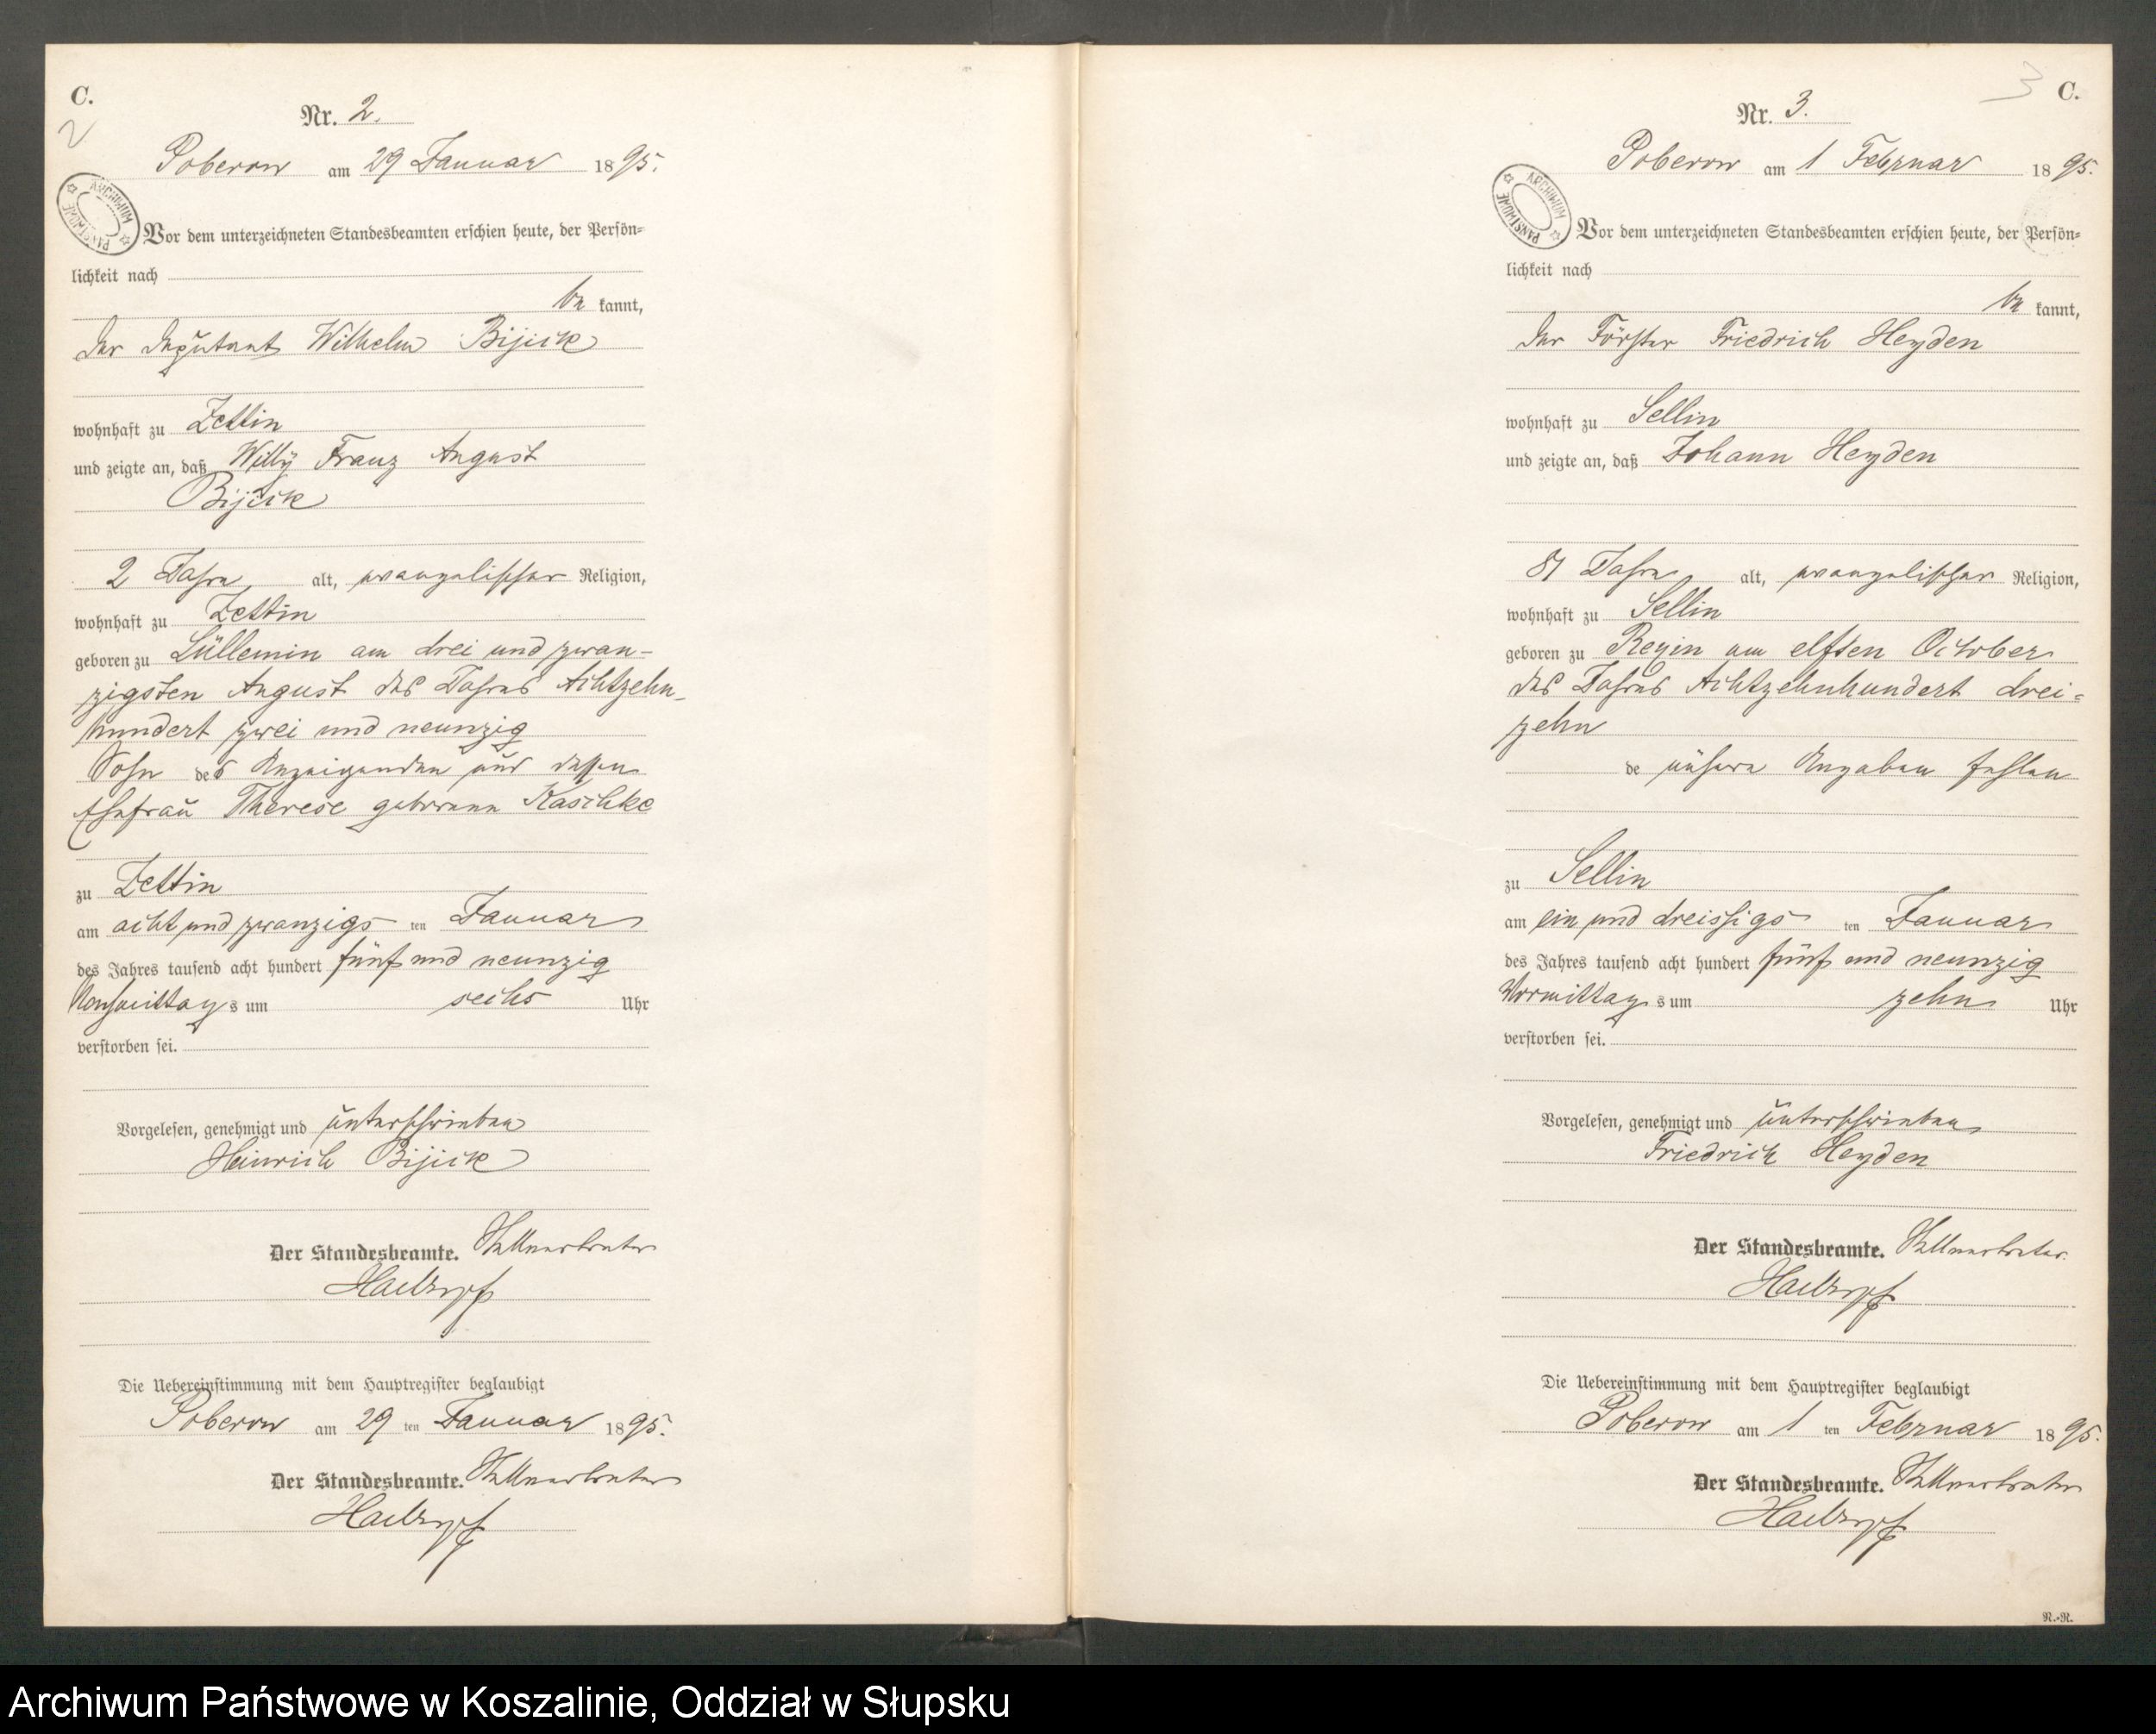 C.
2
Nr. 2.
Poberow am 29 Januar 1895.
ARCHIWUM PAŃSTWOWE
Vor dem unterzeichneten Standesbeamten erschien heute, der Persön=
lichkeit nach
be kannt,
der Deputant Wilhelm Bijick
wohnhaft zu Zettin
und zeigte an, daß Willÿ Franz August
Bijick
2 Jahre, alt, evangelischer Religion,
wohnhaft zu Zettin
geboren zu Lüllemin am drei und zwan-
zigsten August des Jahres Achtzehn-
hundert zwei und neunzig
Sohn des Anzeigenden und dessen
Ehefrau Therese geborene Kaschke
zu Zettin
am acht und zwanzigs ten Januar
des Jahres tausend acht hundert fünf und neunzig
Nachmittag s um sechs Uhr
verstorben sei.
Vorgelesen, genehmigt und unterschrieben
Heinrich Bijick
Der Standesbeamte. Stellvertreter
Die Uebereinstimmung mit dem Hauptregister beglaubigt
Poberow am 29 ten Januar 1895.
Der Standesbeamte. Stellvertreter
3
C.
Nr. 3.
Poberow am 1 Februar 1895.
ARCHIWUM PAŃSTWOWE
Vor dem unterzeichneten Standesbeamten erschien heute, der Persön=
lichkeit nach
be kannt,
der Förster Friedrich Heyden
wohnhaft zu Sellin
und zeigte an, daß Johann Heyden
81 Jahre, alt, evangelischer Religion,
wohnhaft zu Sellin
geboren zu Regin am elften October
des Jahres Achtzehnhundert drei=
zehn
de nähere Angaben fehlen
zu Sellin
am ein und dreissigs ten Januar
des Jahres tausend acht hundert fünf und neunzig
Vormittag s um zehn Uhr
verstorben sei.
Vorgelesen, genehmigt und unterschrieben
Friedrich Heyden
Der Standesbeamte. Stellvertreter.
Die Uebereinstimmung mit dem Hauptregister beglaubigt
Poberow am 1 ten Februar 1895.
Der Standesbeamte. Stellvertreter
N.-N.
Archiwum Państwowe w Koszalinie, Oddział w Słupsku